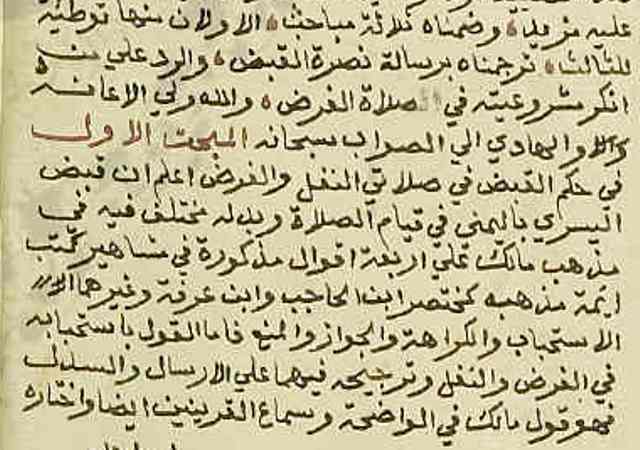 عليه مزيد وضمناه ثلاثة مباحث الاولان منها توطية
للثالث ترجمناه برسالة نصرة القبض والرد علي من
انكر مشروعيته في الصلاة الفرض والله ولي الاعانة
والهادي الي الصواب سبحانه المبحث الاول
في حكم القبض في صلاتي النفل والفرض اعلم ان قبض
اليسري باليمني في قيام الصلاة وبدله مختلف فيه في
مذهب مالك علي اربعة اقوال مذكورة في مشاهير كتب
ايمة مذهبه كمختصر ابن الحاجب وابن عرفة وغيرهما
الاستحباب والكراهة والجواز والمنع فاما القول باستحبابه
في الفرض والنفل وترجيحه فيهما علي الارسال والسدل
فهو قول مالك في الواضحة وسماع القرينين ايضا واختاره